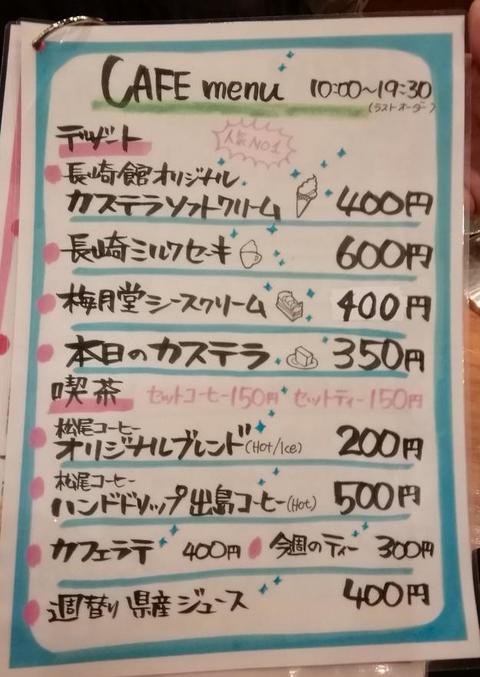 CAFE menu 10:00～19:30
(ラストオーダー)
デザート 人気NO1
長崎館オリジナル
カステラソフトクリーム 400円
長崎ミルクセーキ 600円
梅月堂シースクリーム 400円
本日のカステラ 350円
喫茶 セットコーヒー150円 セットティー150円
松尾コーヒー
オリジナルブレンド(Hot/Ice) 200円
松尾コーヒー
ハンドドリップ出島コーヒー(Hot) 500円
カフェラテ 400円 今週のティー 300円
週替り県産ジュース 400円